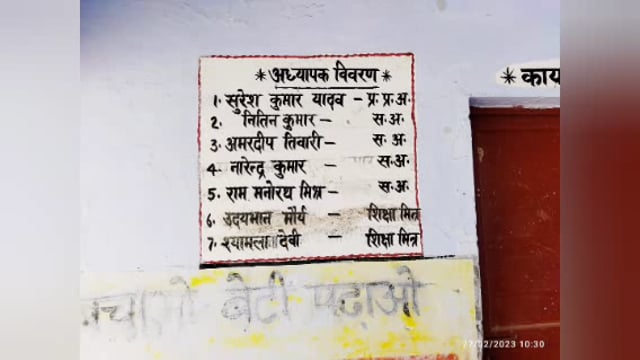 *अध्यापक विवरण*
1. सुरेश कुमार यादव - प्र. प्र. अ.
2. नितिन कुमार - स. अ.
3. अमरदीप तिवारी - स. अ.
4. नारेन्द्र कुमार - स. अ.
5. राम मनोरथ मिश्र - स. अ.
6. उदयभान मौर्य - शिक्षा मित्र
7. श्यामला देवी - शिक्षा मित्र
* काय
बेटी पढ़ाओ
27/02/2023 10:30